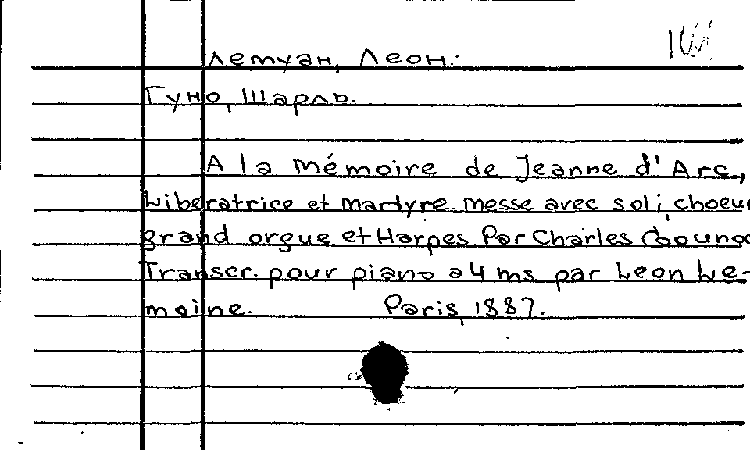 Лемуан, Леон.
Гуно, Шарль.
A la mémoire de Jeanne d'Arc,
Liberatrice et martyre messe avec soli, choeur
grand orgue et Harpes Par Charles Gounod
Transcr. pour piano a 4 ms par Leon Le-
moine. Paris, 1887.